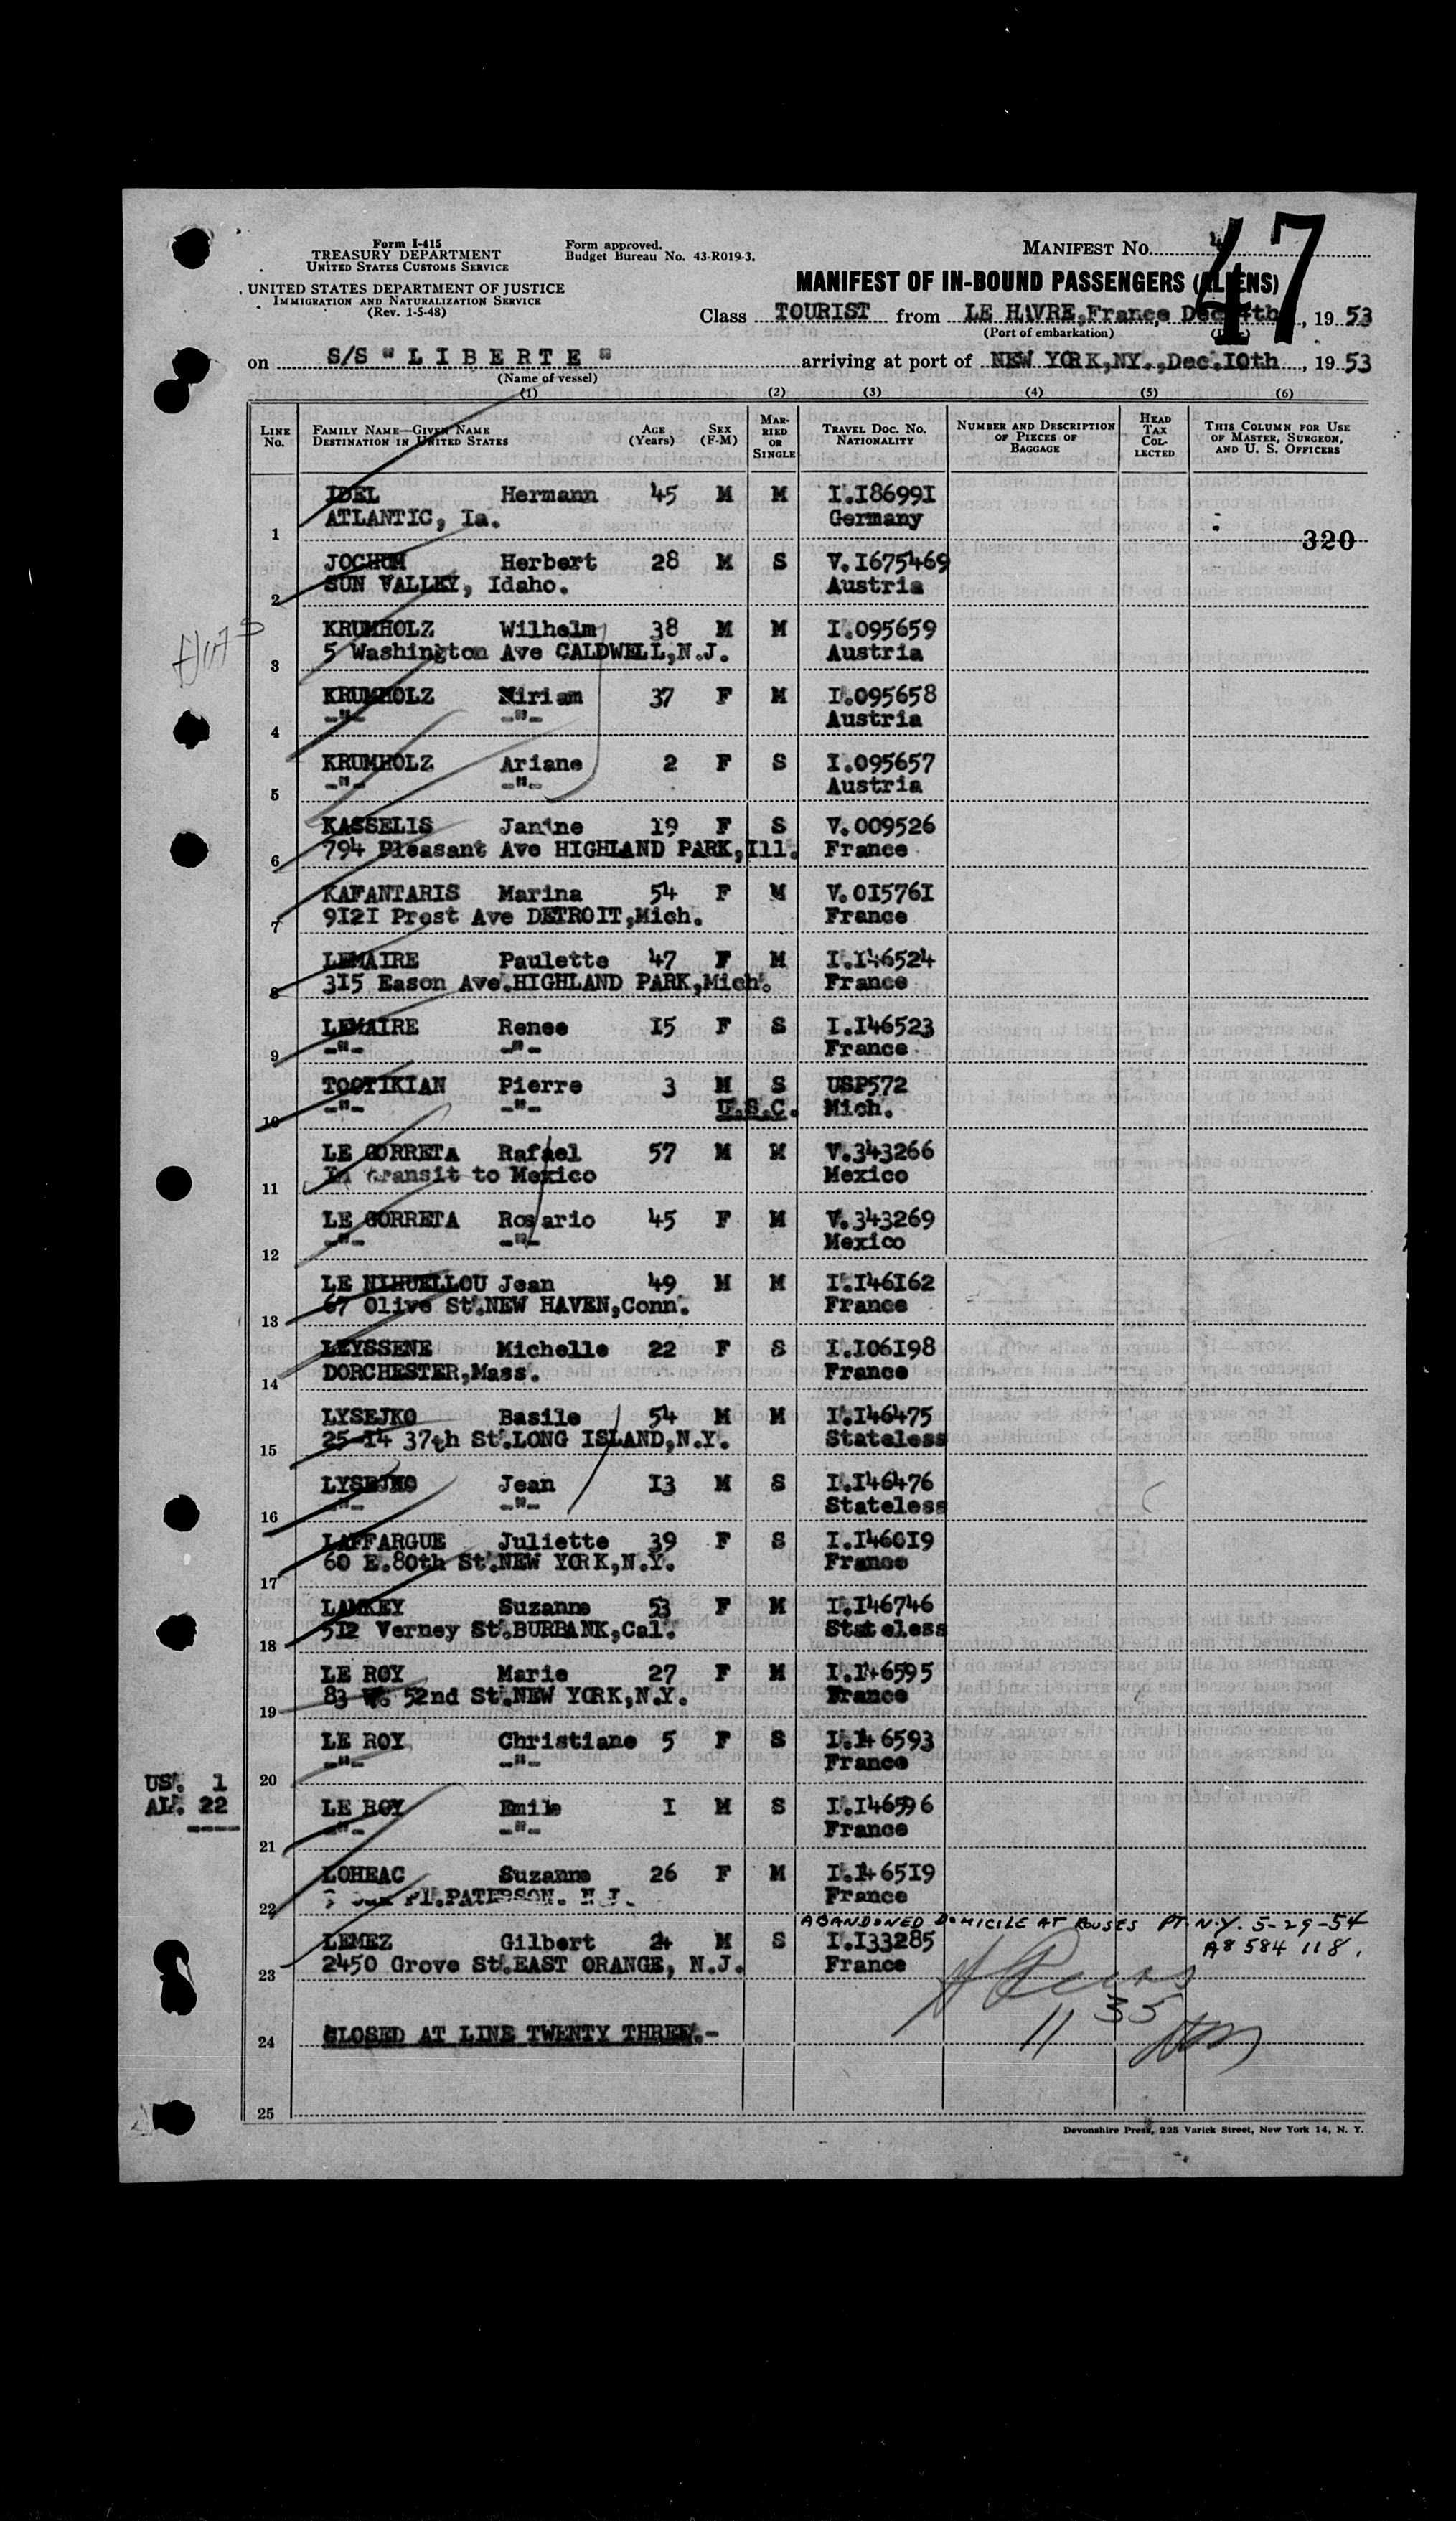 47
Form I-415
TREASURY DEPARTMENT
UNITED STATES CUSTOMS SERVICE
UNITED STATES DEPARTMENT OF JUSTICE
IMMIGRATION AND NATURALIZATION SERVICE
(Rev. 1-5-48)
Form approved.
Budget Bureau No. 43-R019-3.
MANIFEST NO.
MANIFEST OF IN-BOUND PASSENGERS (ALIENS)
Class TOURIST from LE HAVRE, France, Dec 4th, 19 53
(Port of embarkation)
on S/S " L I B E R T E " arriving at port of NEW YORK, NY., Dec. 10th, 19 53
(Name of vessel)
(1) (2) (3) (4) (5) (6)
LINE NO. FAMILY NAME—GIVEN NAME DESTINATION IN UNITED STATES AGE (YEARS) SEX (F-M) MARRIED OR SINGLE TRAVEL DOC. NO. NATIONALITY NUMBER AND DESCRIPTION OF PIECES OF BAGGAGE HEAD TAX COLLECTED THIS COLUMN FOR USE OF MASTER, SURGEON, AND U. S. OFFICERS
IDEL Hermann 45 M M I.I8699I
1 ATLANTIC, Ia. Germany
320
JOCHUM Herbert 28 M S V.I675469
2 SUN VALLEY, Idaho. Austria
KRUMHOLZ Wilhelm 38 M M I.095659
3 5 Washington Ave CALDWELL, N.J. Austria
KRUMHOLZ Miriam 37 F M I.095658
4 -"- -"- Austria
KRUMHOLZ Ariane 2 F S I.095657
5 -"- -"- Austria
KASSELIS Janine I9 F S V.009526
6 794 Pleasant Ave HIGHLAND PARK, Ill. France
KAFANTARIS Marina 54 F M V.0I576I
7 9I2I Prest Ave DETROIT, Mich. France
LEMAIRE Paulette 47 F M I.I46524
8 3I5 Eason Ave.HIGHLAND PARK, Mich. France
LEMAIRE Renee I5 F S I.I46523
9 -"- -"- France
TOOTIKIAN Pierre 3 M S USP572
10 -"- -"- U.S.C. Mich.
LE GORRETA Rafael 57 M M V.343266
11 In transit to Mexico Mexico
LE GORRETA Rosario 45 F M V.343269
12 -"- -"- Mexico
LE NIHUELLOU Jean 49 M M I.I46I62
13 67 Olive St.NEW HAVEN, Conn. France
LEYSSENE Michelle 22 F S I.I06I98
14 DORCHESTER, Mass. France
LYSEJKO Basile 54 M M I.I46475
15 25-I4 37th St.LONG ISLAND, N.Y. Stateless
LYSEJKO Jean I3 M S I.I46476
16 -"- -"- Stateless
LAFFARGUE Juliette 39 F S I.I460I9
17 60 E.80th St.NEW YORK, N.Y. France
LAMKEY Suzanne 53 F M I.I46746
18 5I2 Verney St.BURBANK, Cal. Stateless
LE ROY Marie 27 F M I.I46595
19 83 W. 52nd St.NEW YORK, N.Y. France
LE ROY Christiane 5 F S I.I46593
20 -"- -"- France
US. 1
AL. 22
LE ROY Emile I M S I.I46596
21 -"- -"- France
LOHEAC Suzanne 26 F M I.I465I9
22 Pl.PATERSON. N.J. France
ABANDONED DOMICILE AT ROUSES PT. N.Y. 5-29-54
A8 584 118.
LEMEZ Gilbert 24 M S I.I33285
23 2450 Grove St.EAST ORANGE, N.J. France
11 35
24 CLOSED AT LINE TWENTY THREE.-
25
Devonshire Press, 225 Varick Street, New York 14, N. Y.